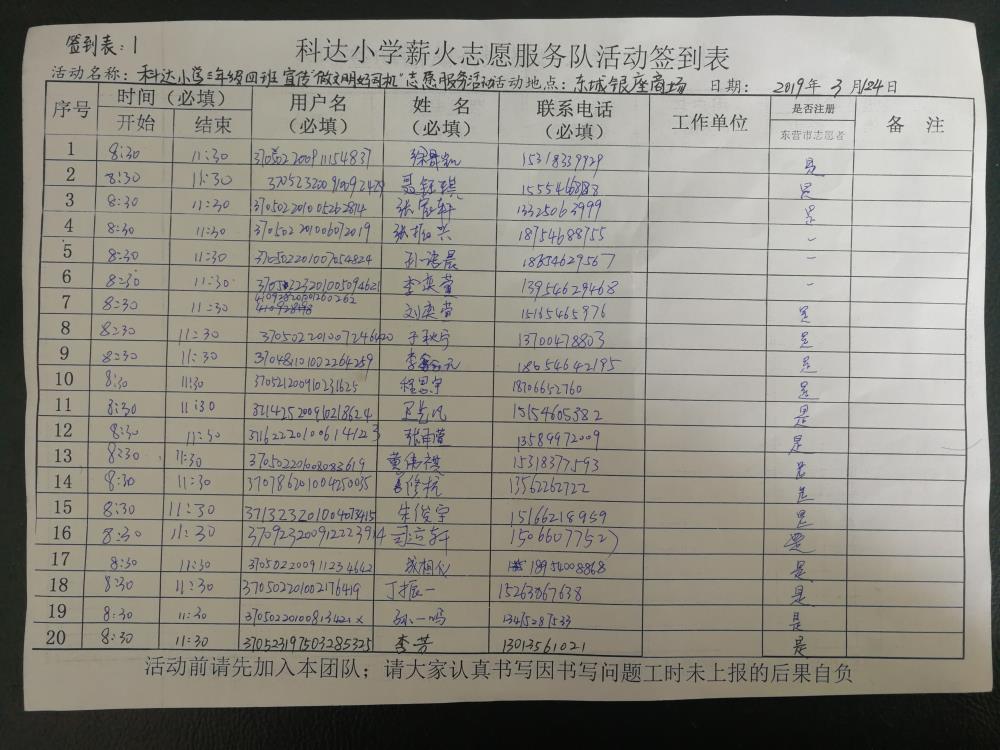 签到表：1
科达小学薪火志愿服务队活动签到表
活动名称：科达小学三年级四班宣传"做文明好司机"志愿服务活动 活动地点：东城银座商场 日期： 2019年 3 月 24日
序号 时间（必填） 用户名（必填） 姓 名（必填） 联系电话（必填） 工作单位 是否注册东营市志愿者 备 注
开始 结束
1 8:30 11:30 370502200911154837 15318339929 是
2 8:30 11:30 是
3 8:30 11:30 370502201005262814 张家轩 13325063999 是
4 8:30 11:30 370502201006072019 张振兴 18754688755 -
5 8:30 11:30 370502201007054824 18854629567 -
6 8:30 11:30 李奕萱 13954629468 -
7 8:30 11:30 刘奕萱 15165465976 是
8 8:30 11:30 于秋宁 13700478803 是
9 8:30 11:30 370481010102264259 18654642195 是
10 8:30 11:30 370521200910231625 程思宇 18706652760 是
11 8:30 11:30 371425200910218624 15154605382 是
12 8:30 11:30 371622201006141223 张雨萱 13589972009 是
13 8:30 11:30 370502201008083619 黄伟祺 15318377593 是
14 8:30 11:30 370786201004250035 13562262722 是
15 8:30 11:30 371323201004073415 朱俊宇 15166218959 是
16 8:30 11:30 370923200912223914 司运轩 15066077527 是
17 8:30 11:30 370502200911234642 18954008868 是
18 8:30 11:30 370502201002176419 丁振一 15263867638 是
19 8:30 11:30 37050220100813421x 孙一鸣 13475287533 是
20 8:30 11:30 370523197503285325 李芳 13013561021 是
活动前请先加入本团队；请大家认真书写因书写问题工时未上报的后果自负